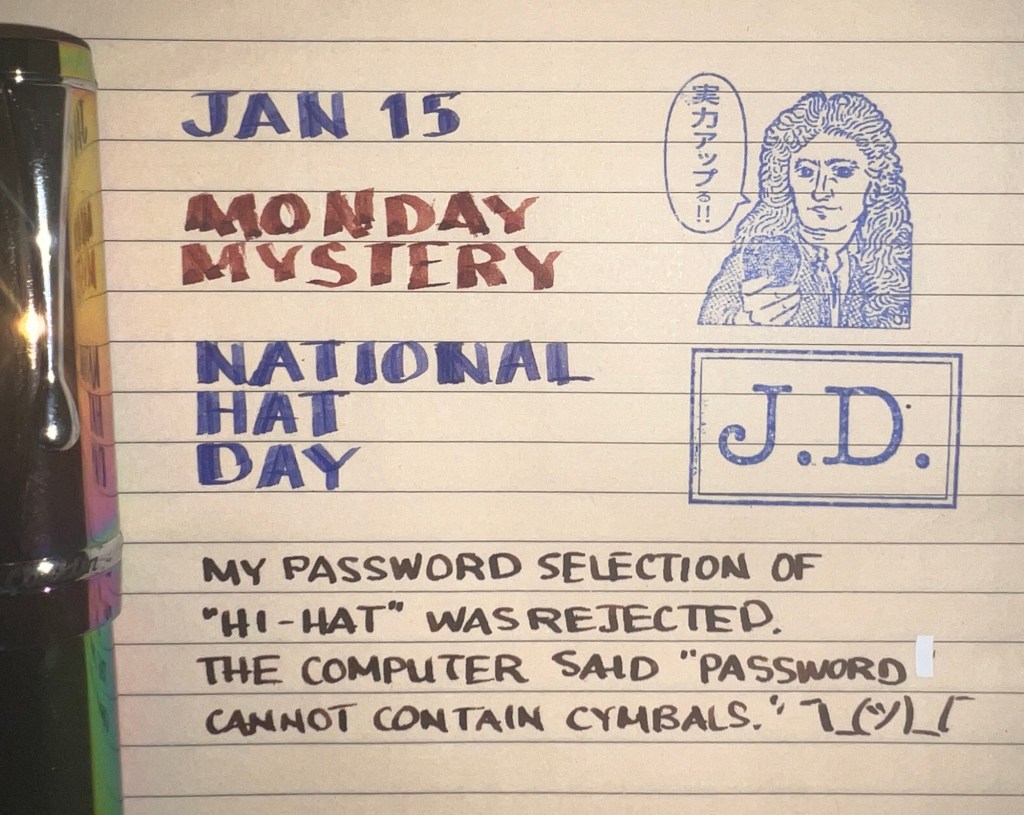 JAN 15
MONDAY
MYSTERY
NATIONAL
HAT
DAY
実力アップる!!
J.D.
MY PASSWORD SELECTION OF
"HI-HAT" WAS REJECTED.
THE COMPUTER SAID "PASSWORD
CANNOT CONTAIN CYMBALS." ¯\_(ツ)_/¯